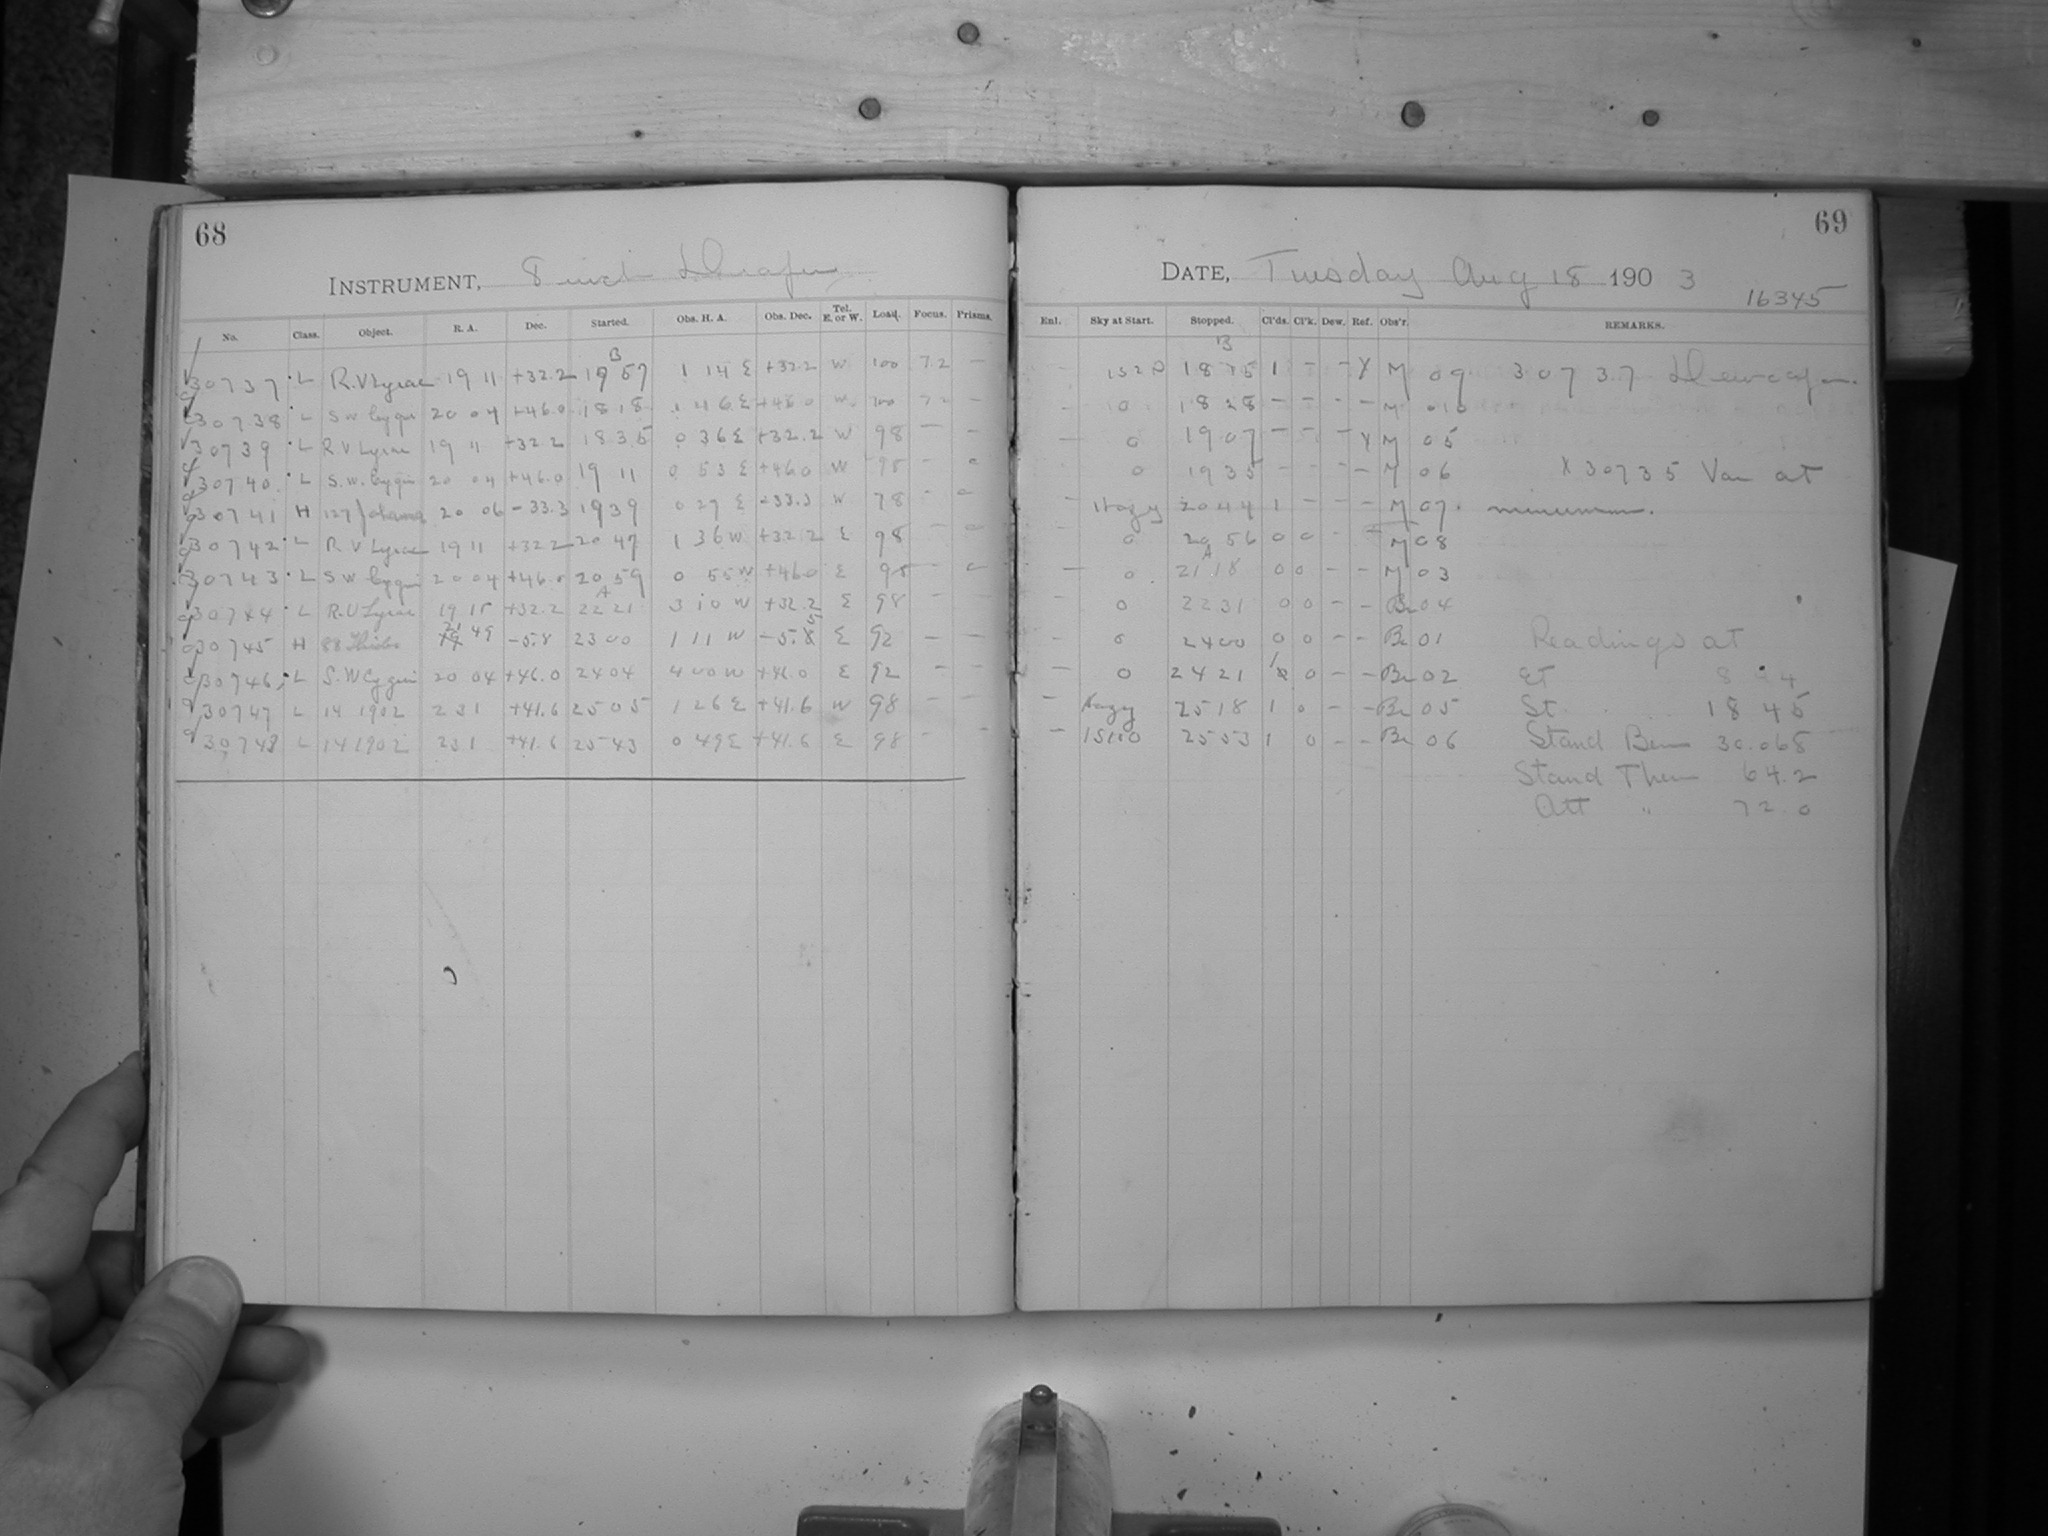 68
INSTRUMENT, 8 inch Draper
No. Class. Object. R. A. Dec. Started. Obs. H. A. Obs. Dec. Tel. E. or W. Load. Focus. Prisms.
B
30737 L R.V Lyrae 19 11 +32.2 1957 1 14 E +32.2 W 100 7.2 –
30738 L S W Cygni 20 04 +46.0 1818 1 46 E +46.0 W 100 7.2 –
30739 L R V Lyrae 19 11 +32.2 1835 0 36 E +32.2 W 98 – –
30740 L S.W. Cygni 20 04 +46.0 19 11 0 53 E +46.0 W 98 – –
30741 H 127 20 06 –33.3 1939 0 29 E –33.3 W 78 – –
30742 L R V Lyrae 19 11 +32.2 20 47 1 36 W +32.2 E 98 – –
30743 L S W Cygni 20 04 +46.0 20 59 0 55 W +46.0 E 98 – –
A
30744 L R.V Lyrae 19 15 +32.2 22 21 3 10 W +32.2 E 98 – –
30745 H 88 21 49 –5.8 2300 1 11 W –5.8 E 92 – –
30746 L S.W Cygni 20 04 +46.0 2404 4 00 W +46.0 E 92 – –
30747 L 14 1902 2 31 +41.6 2505 1 26 E +41.6 W 98 – –
30748 L 14 1902 2 31 +41.6 2543 0 49 E +41.6 E 98 – –
69
DATE, Tuesday Aug 18 1903
16345
Enl. Sky at Start. Stopped. Cl'ds. Cl'k. Dew. Ref. Obs'r. REMARKS.
B
– 18 15 1 – – Y M 09 30737 Dewcap on.
– 0 1828 – – – – M 010
– 0 1907 – – – Y M 05
0 1935 – – – – M 06 X 30735 Var at
– Hazy 2044 1 – – – M 07 minimum.
– 0 20 56 0 0 – – M 08
A
– 0 21 18 0 0 – – M 03
– 0 2231 0 0 – – Br 04
– 0 2400 0 0 – – Br 01 Readings at
– 0 2421 1 0 – – Br 02 ET
– Hazy 2518 1 0 – – Br 05 St 18 45
– IS110 2553 1 0 – – Br 06 Stand Bar 30.068
Stand Ther 64.2
Att " 72.0